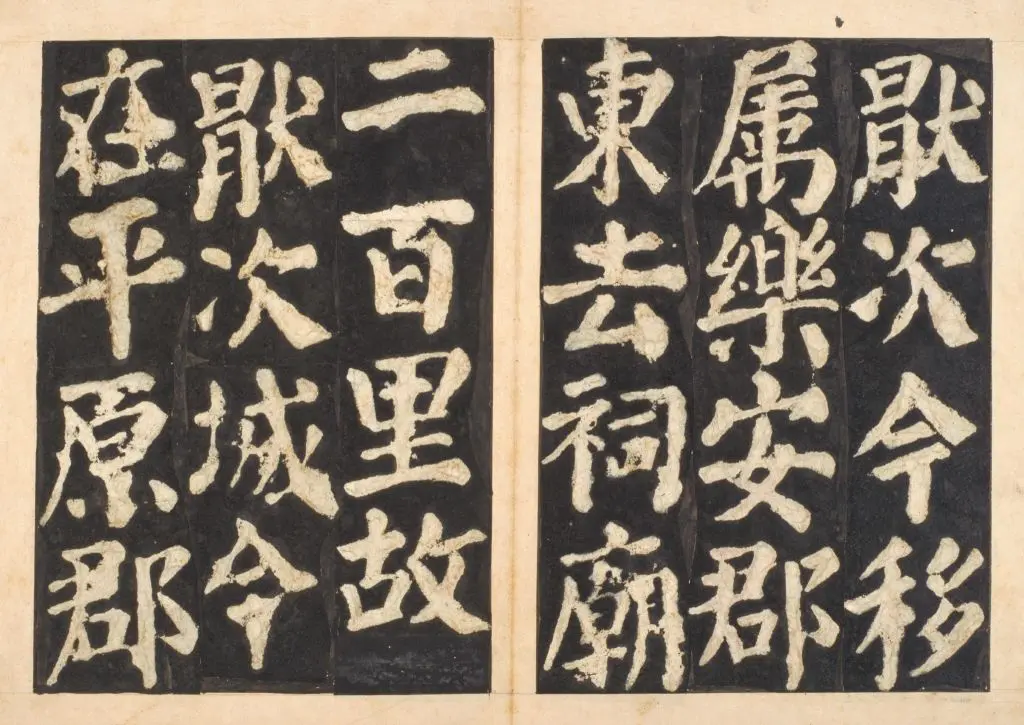 猒次今移
属樂安郡
東去祠廟
二百里故
猒次城今
在平原郡